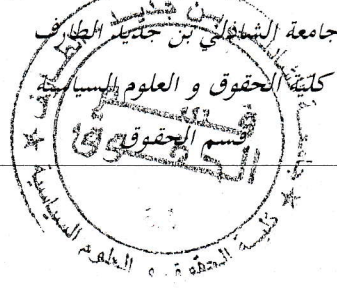 جامعة الشاذلي بن جديد الطارف
كلية الحقوق و العلوم السياسية
قسم الحقوق
قسم
الحقوق
كلية الحقوق و العلوم السياسية